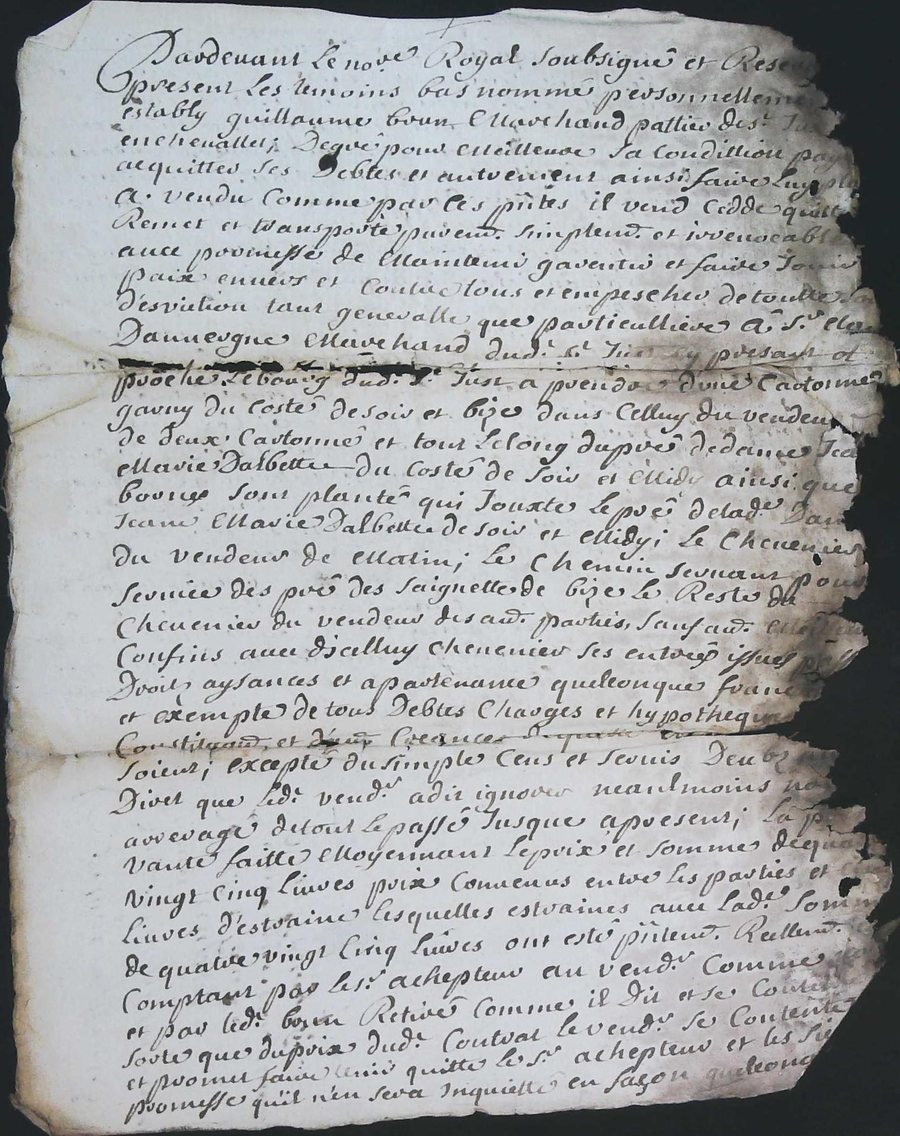 Pardevant le nore Royal soubsigné et
present les temoins bas nommé personnelleme
estably guillaume brun Marchand pattier de St
en chevallet; De gré pour Meilleure sa Condittion
acquitter ses Debtes et autrement ainsi faire luy
A vendu Comme par Ces pñtes il vend Cedde quitte
Remet et transporte purem. simplem. et irrevocabl
avec promesse de Maintenir garentir et faire Jouir
paix envers et Contre tous et empescher de toutte
d'esviction tant generalle que particulliere A Sr
Dauvergne Marchand dud. St present et
proche le bourg dud. St Just a prendre d'une Cartonne
garny du Costé de soir et bize dans Celluy du vendeur
de deux Cartonne et tout le long du pré de dame
Marie Dalbette du Costé de soir et Midy ainsi que
bornes sont planté qui Jouxte le pré de lad. Dam
Jeane Marie Dalbette de soir et Midy; le Chenevier
du vendeur de Matin; le Chemin servant pour
service des pré des saignette de bize le Reste du
Chenevier du vendeur des au. parties, sauf au.
Confins avec d'icelluy chenevier ses entrées issues
Droit, aysances et apartenance quelconque franc
et exempte de tous Debtes Charges et hypotheque
et Creances
soient; excepté du simple Cens et servis Deubz
Divet que led. vendr a dit ignorer neantmoins
arrerage de tout le passé Jusque a present; la
vante faitte Moyennant le prix et somme de qua
vingt Cinq livres prix Convenus entre les parties et
livres d'estraine lesquelles estraines avec lad. Somm
de quatre vingt Cinq livres ont esté pñtem. Reellem.
Comptant par le Sr achepteur au vendr Comme
et par led. brun Retiré Comme il Dit et se Conten
sorte que du prix dud. Contrat le vendr se Contente
et promet faire tenir quitte le Sr achepteur et les
promesse qu'il n'en sera Inquietté en façon quelconq